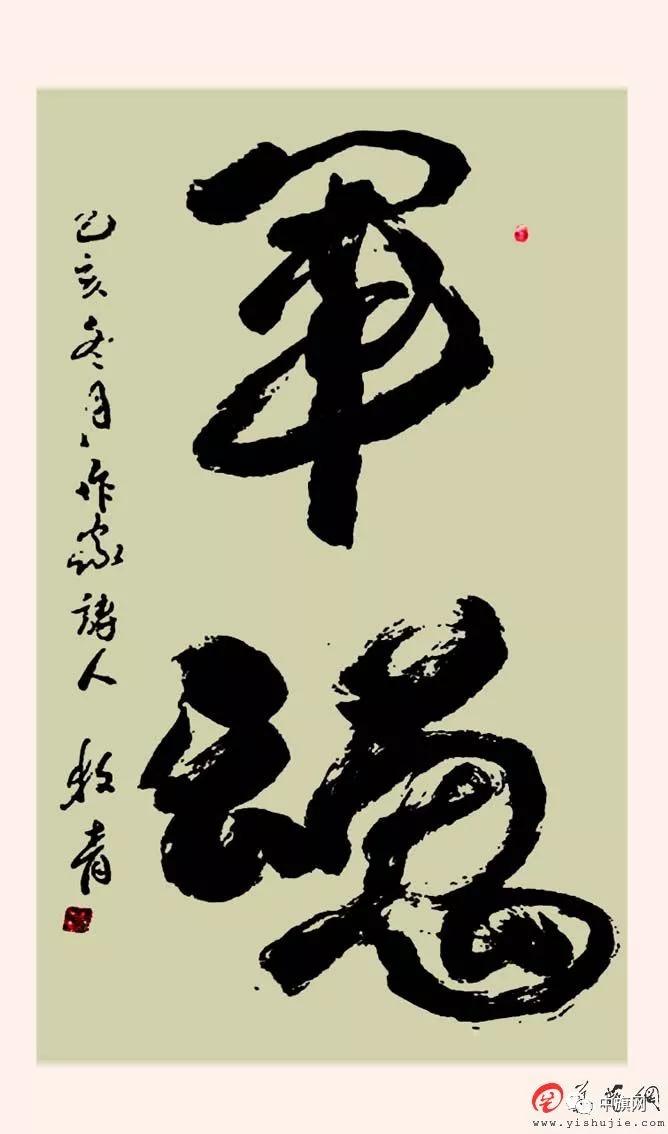 軍魂
己亥冬月作家詩人 敖青
中旗网
www.yishujie.com